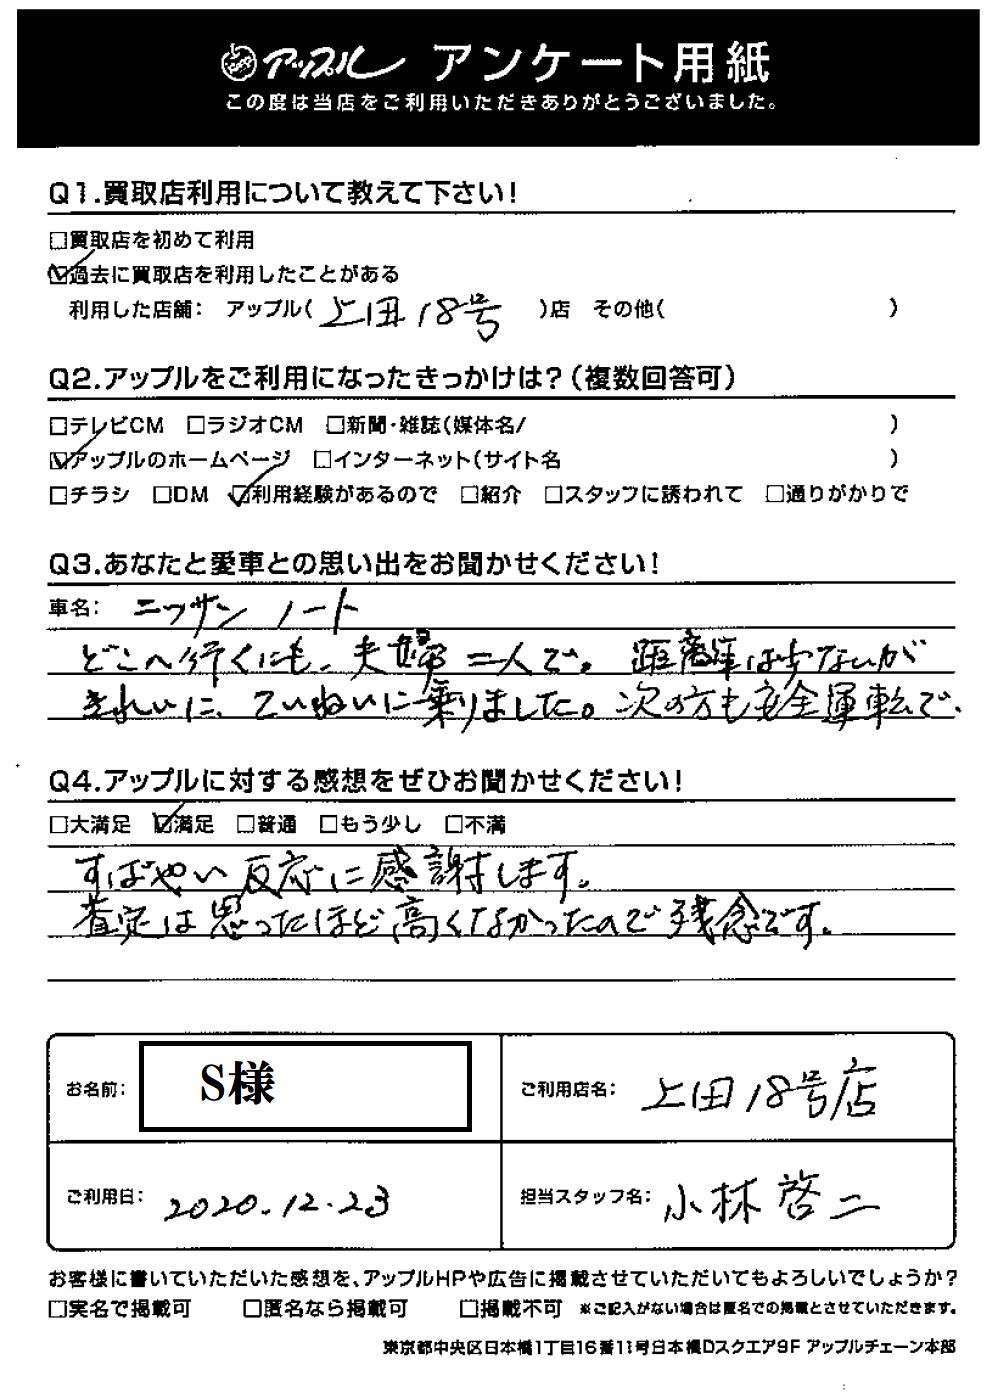 アップル アンケート用紙
この度は当店をご利用いただきありがとうございました。
Q1.買取店利用について教えて下さい!
□買取店を初めて利用
☑過去に買取店を利用したことがある
利用した店舗: アップル(上田18号)店 その他( )
Q2.アップルをご利用になったきっかけは?(複数回答可)
□テレビCM □ラジオCM □新聞・雑誌(媒体名/ )
☑アップルのホームページ □インターネット(サイト名 )
□チラシ □DM ☑利用経験があるので □紹介 □スタッフに誘われて □通りがかりで
Q3.あなたと愛車との思い出をお聞かせください!
車名: ニッサン ノート
どこへ行くにも、夫婦二人で。距離は少ないが
きれいに、ていねいに乗りました。次の方も安全運転で、
Q4.アップルに対する感想をぜひお聞かせください!
□大満足 ☑満足 □普通 □もう少し □不満
すばやい反応に感謝します。
査定は思ったほど高くなかったので残念です。
お名前: S様
ご利用店名: 上田18号店
ご利用日: 2020.12.23
担当スタッフ名: 小林啓二
お客様に書いていただいた感想を、アップルHPや広告に掲載させていただいてもよろしいでしょうか?
□実名で掲載可 □匿名なら掲載可 □掲載不可 ※ご記入がない場合は匿名での掲載とさせていただきます。
東京都中央区日本橋1丁目16番11号日本橋Dスクエア9F アップルチェーン本部